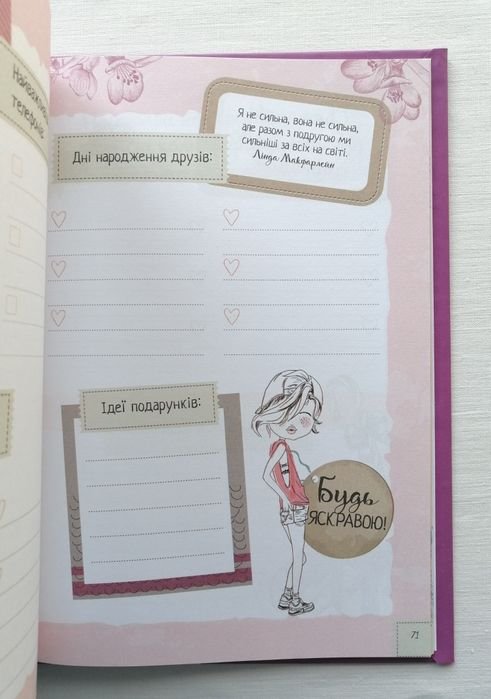 телефонів:
Дні народження друзів:
Я не сильна, вона не сильна,
але разом з подругою ми
сильніші за всіх на світі.
Лінда Макфарлейн
Ідеї подарунків:
Будь
ЯСКРАВОЮ!
71